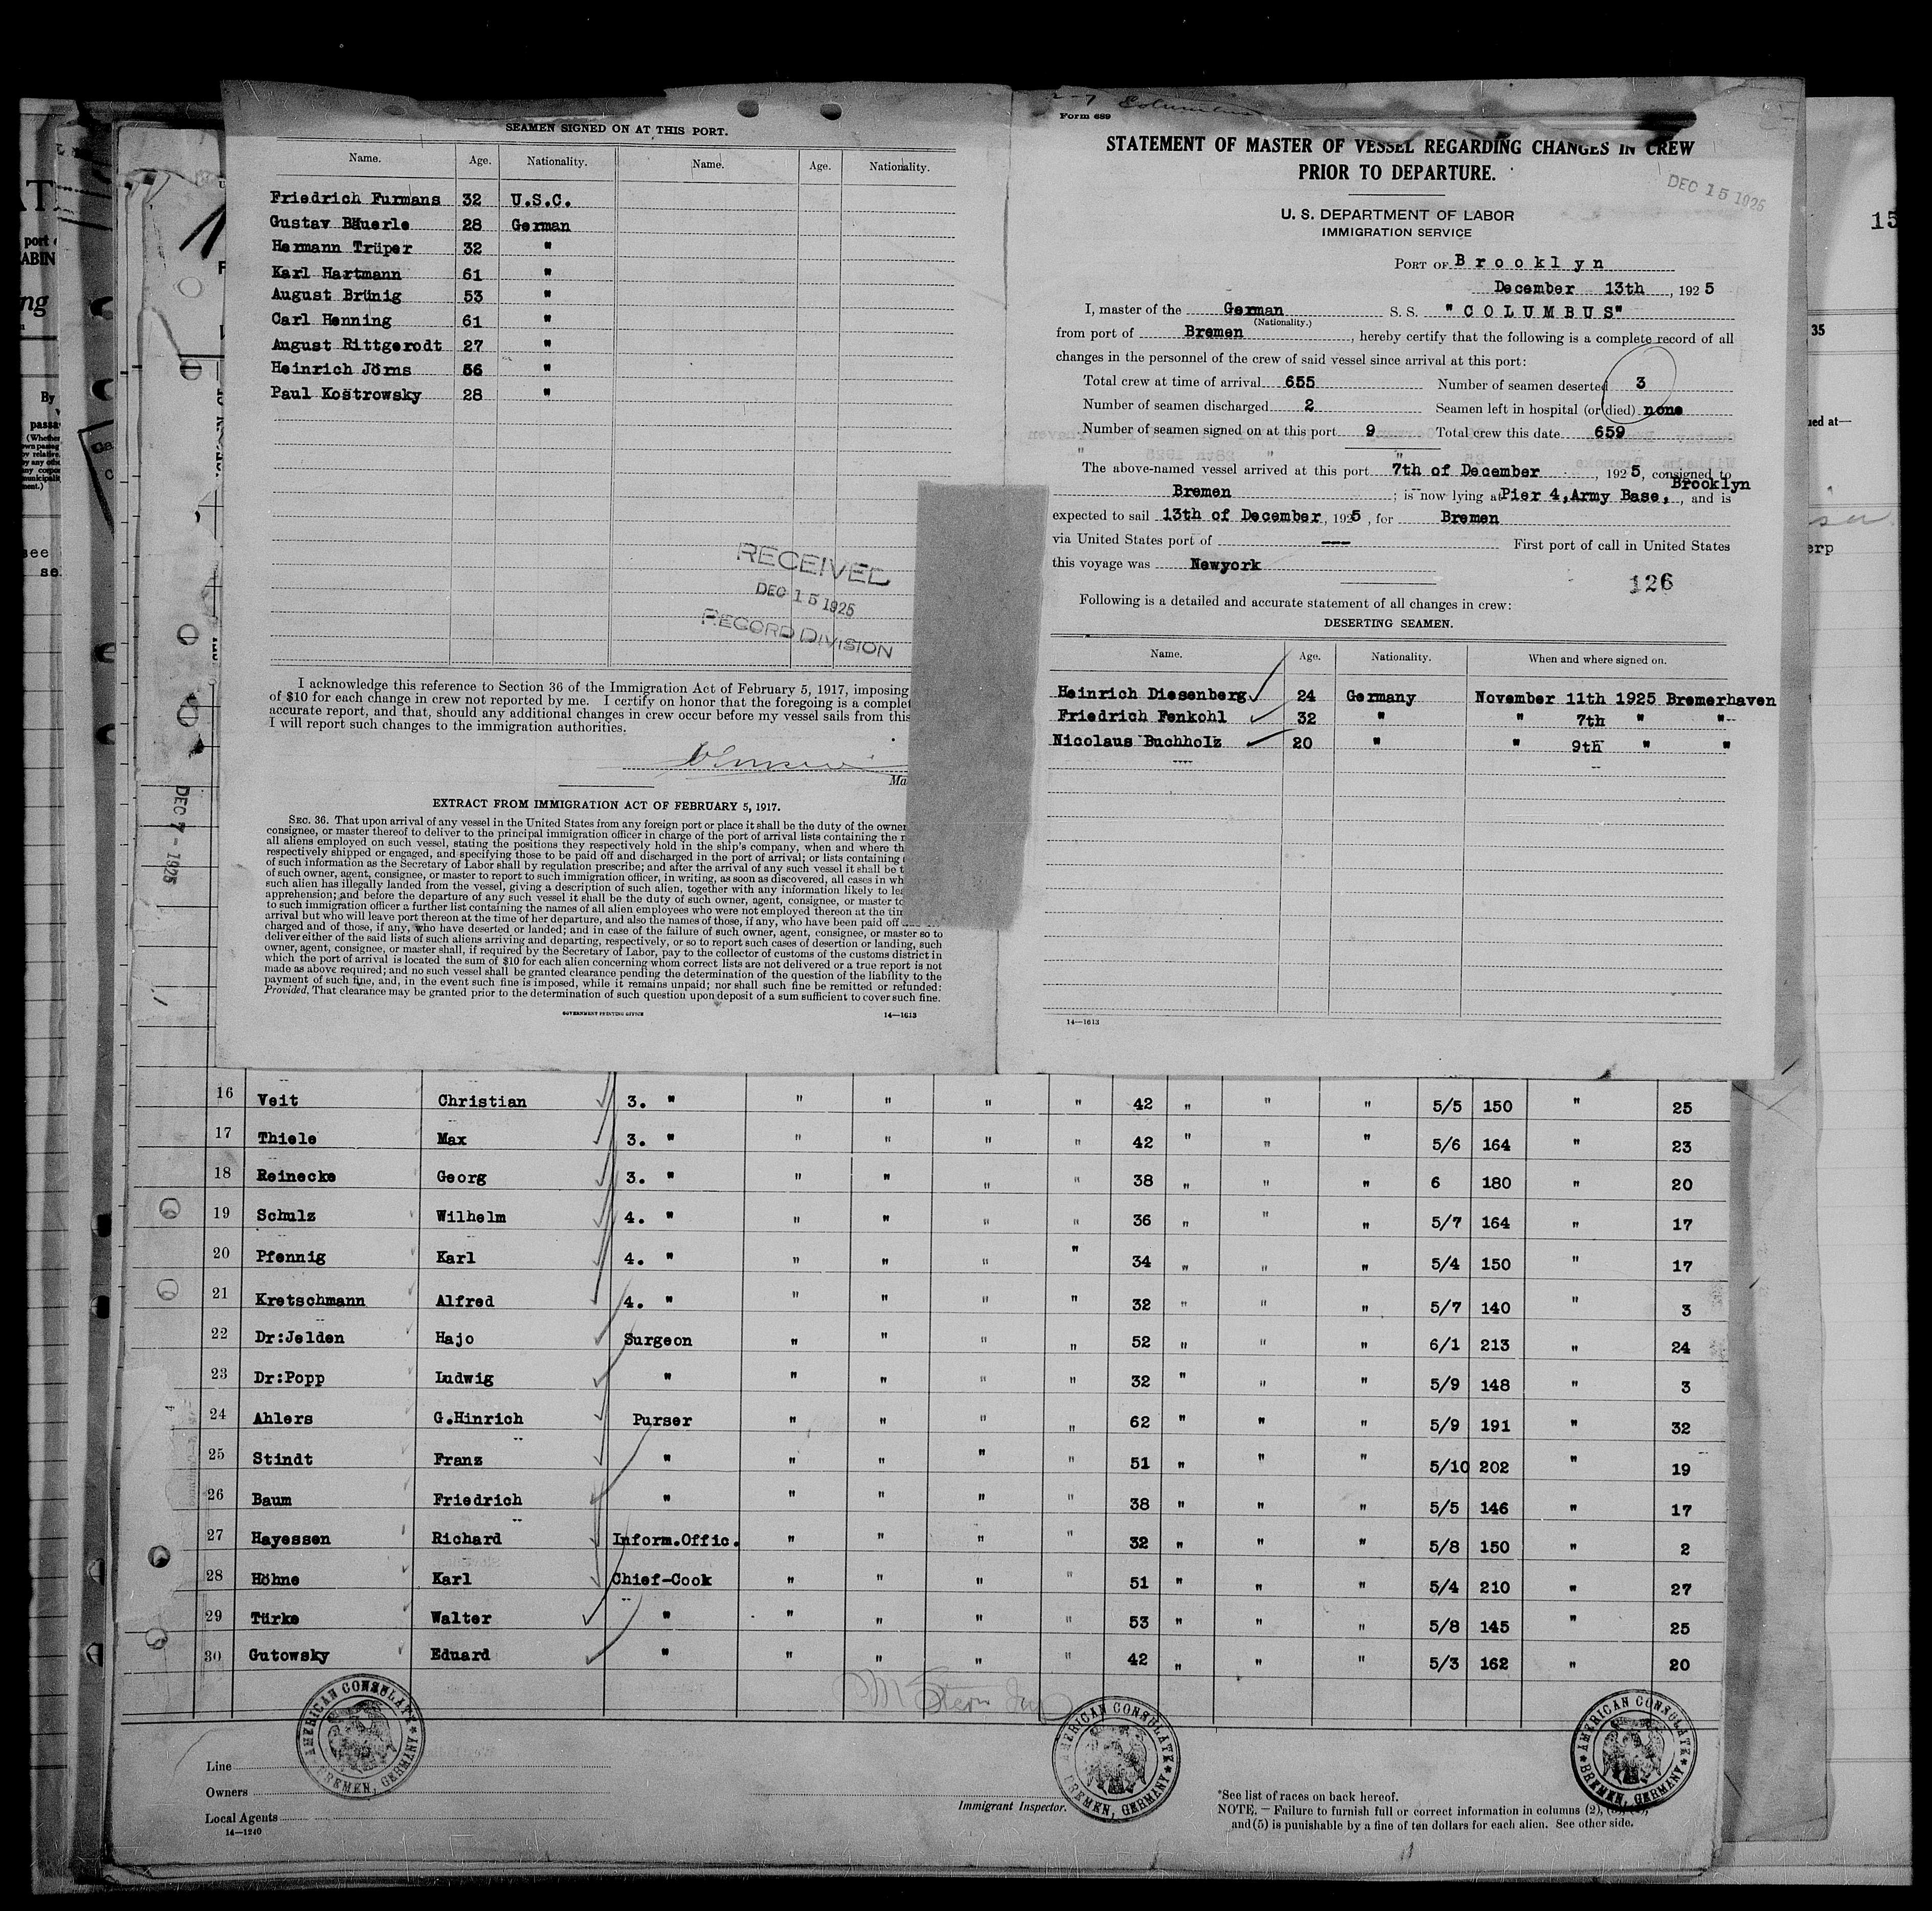 SEAMEN SIGNED ON AT THIS PORT.
Name. Age. Nationality. Name. Age. Nationality.
Friedrich Furmans 32 U.S.C.
Gustav Bäuerle 28 German
Hermann Trüper 32 "
Karl Hartmann 61 "
August Brünig 53 "
Carl Henning 61 "
August Rittgerodt 27 "
Heinrich Jörns 56 "
Paul Kostrowsky 28 "
RECEIVED
DEC 15 1925
RECORD DIVISION
I acknowledge this reference to Section 36 of the Immigration Act of February 5, 1917, imposing
of $10 for each change in crew not reported by me. I certify on honor that the foregoing is a complet
accurate report, and that, should any additional changes in crew occur before my vessel sails from this
I will report such changes to the immigration authorities.
Ma
EXTRACT FROM IMMIGRATION ACT OF FEBRUARY 5, 1917.
SEC. 36. That upon arrival of any vessel in the United States from any foreign port or place it shall be the duty of the owner
consignee, or master thereof to deliver to the principal immigration officer in charge of the port of arrival lists containing the
all aliens employed on such vessel, stating the positions they respectively hold in the ship's company, when and where th
respectively shipped or engaged, and specifying those to be paid off and discharged in the port of arrival; or lists containing
of such information as the Secretary of Labor shall by regulation prescribe; and after the arrival of any such vessel it shall be t
of such owner, agent, consignee, or master to report to such immigration officer, in writing, as soon as discovered, all cases in wh
such alien has illegally landed from the vessel, giving a description of such alien, together with any information likely to lea
apprehension; and before the departure of any such vessel it shall be the duty of such owner, agent, consignee, or master to
to such immigration officer a further list containing the names of all alien employees who were not employed thereon at the tim
arrival but who will leave port thereon at the time of her departure, and also the names of those, if any, who have been paid off
charged and of those, if any, who have deserted or landed; and in case of the failure of such owner, agent, consignee, or master so to
deliver either of the said lists of such aliens arriving and departing, respectively, or so to report such cases of desertion or landing, such
owner, agent, consignee, or master shall, if required by the Secretary of Labor, pay to the collector of customs of the customs district in
which the port of arrival is located the sum of $10 for each alien concerning whom correct lists are not delivered or a true report is not
made as above required; and no such vessel shall be granted clearance pending the determination of the question of the liability to the
payment of such fine, and, in the event such fine is imposed, while it remains unpaid; nor shall such fine be remitted or refunded:
Provided, That clearance may be granted prior to the determination of such question upon deposit of a sum sufficient to cover such fine.
GOVERNMENT PRINTING OFFICE 14—1613
Columbus
Form 689
STATEMENT OF MASTER OF VESSEL REGARDING CHANGES IN CREW
PRIOR TO DEPARTURE.
DEC 15 1925
U. S. DEPARTMENT OF LABOR
IMMIGRATION SERVICE
PORT OF Brooklyn
December 13th, 1925
I, master of the German S. S. "COLUMBUS"
(Nationality.)
from port of Bremen, hereby certify that the following is a complete record of all
changes in the personnel of the crew of said vessel since arrival at this port:
Total crew at time of arrival 655 Number of seamen deserted 3
Number of seamen discharged 2 Seamen left in hospital (or died) none
Number of seamen signed on at this port 9 Total crew this date 659
The above-named vessel arrived at this port 7th of December, 1925, consigned to
Bremen; is now lying at Pier 4, Army Base, Brooklyn, and is
expected to sail 13th of December, 1925, for Bremen
via United States port of --- First port of call in United States
this voyage was Newyork
126
Following is a detailed and accurate statement of all changes in crew:
DESERTING SEAMEN.
Name. Age. Nationality. When and where signed on.
Heinrich Diesenberg 24 Germany November 11th 1925 Bremerhaven
Friedrich Fenkohl 32 " " 7th " "
Nicolaus Buchholz 20 " " 9th " "
14—1613
DEC 7 - 1925
16 Veit Christian 3. " " " " " 42 " " " 5/5 150 " 25
17 Thiele Max 3. " " " " " 42 " " " 5/6 164 " 23
18 Reinecke Georg 3. " " " " " 38 " " " 6 180 " 20
19 Schulz Wilhelm 4. " " " " " 36 " " " 5/7 164 " 17
20 Pfennig Karl 4. " " " " " 34 " " " 5/4 150 " 17
21 Kretschmann Alfred 4. " " " " " 32 " " " 5/7 140 " 3
22 Dr:Jelden Hajo Surgeon " " " " 52 " " " 6/1 213 " 24
23 Dr:Popp Ludwig " " " " " 32 " " " 5/9 148 " 3
24 Ahlers G.Hinrich Purser " " " " 62 " " " 5/9 191 " 32
25 Stindt Franz " " " " " 51 " " " 5/10 202 " 19
26 Baum Friedrich " " " " " 38 " " " 5/5 146 " 17
27 Hayessen Richard Inform.Offic. " " " " 32 " " " 5/8 150 " 2
28 Höhne Karl Chief-Cook " " " " 51 " " " 5/4 210 " 27
29 Türke Walter " " " " " 53 " " " 5/8 145 " 25
30 Gutowsky Eduard " " " " " 42 " " " 5/3 162 " 20
AMERICAN CONSULATE BREMEN, GERMANY
AMERICAN CONSULATE BREMEN, GERMANY
AMERICAN CONSULATE BREMEN, GERMANY
Line
Owners
Local Agents
14—1240
Immigrant Inspector.
*See list of races on back hereof.
NOTE. — Failure to furnish full or correct information in columns (2),
and (5) is punishable by a fine of ten dollars for each alien. See other side.
15
35